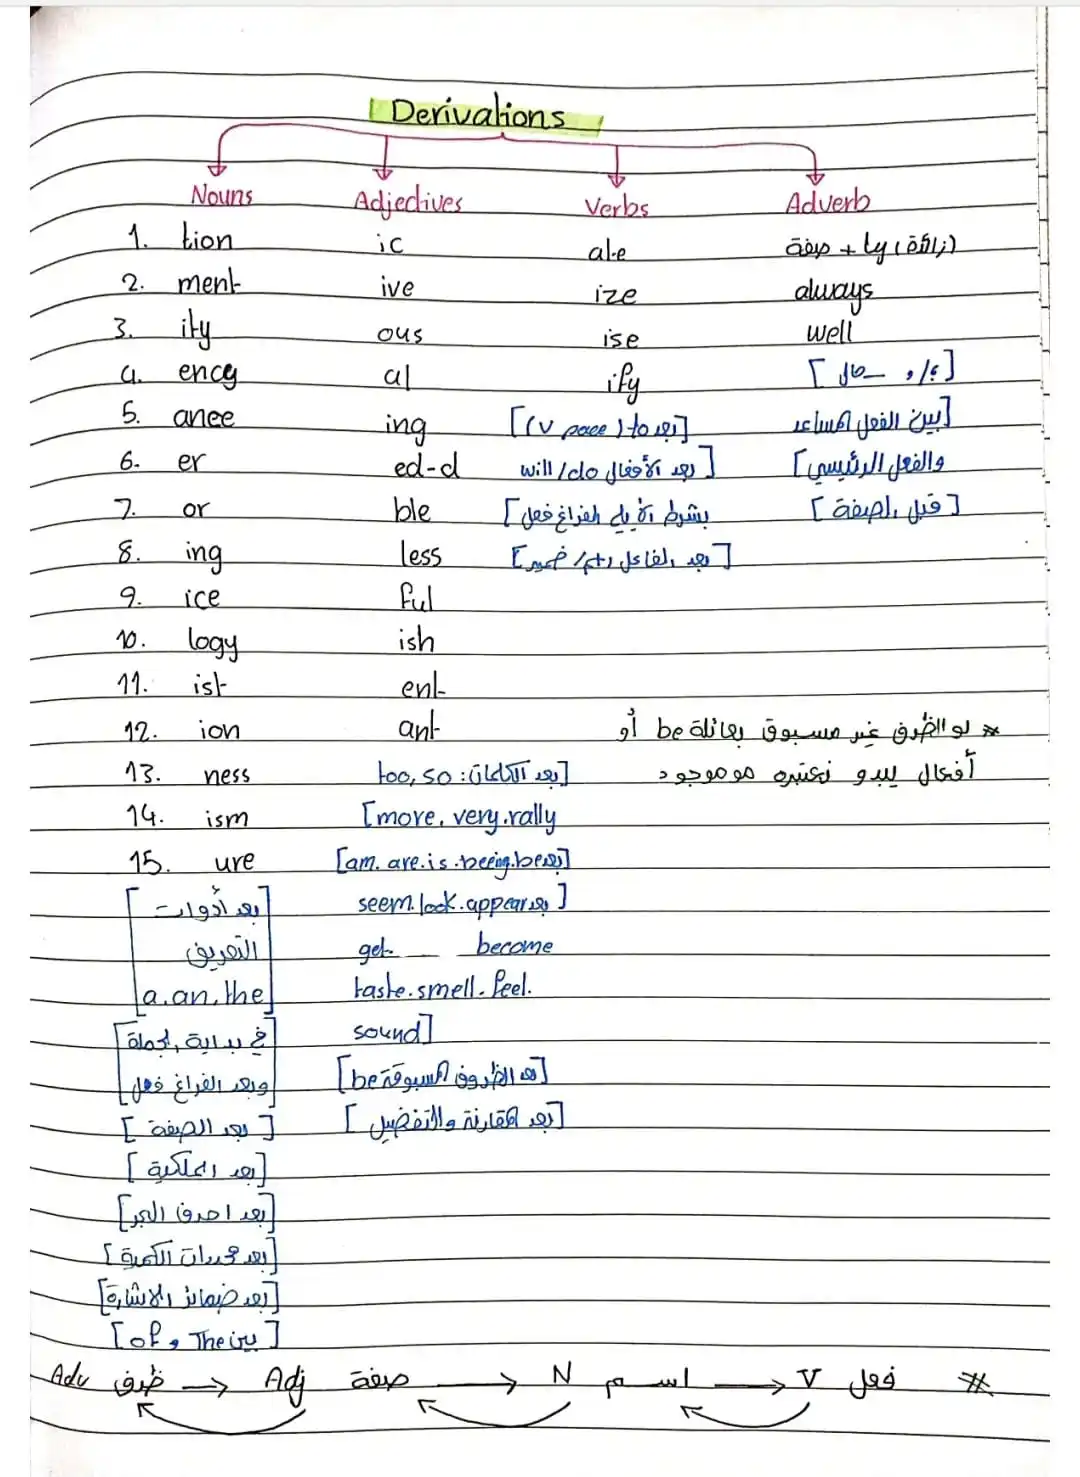 Derivations
Nouns Adjectives Verbs Adverb
1. tion ic ate صفة + ly (زائدة)
2. ment ive ize always
3. ity ous ise well
4. ency al ify
5. ance ing [بعد to (V base)] [بين الفعل المساعد
6. er ed-d [بعد الأفعال will/do والفعل الرئيسي]
7. or ble بشرط ألا يلي الفراغ فعل] [قبل الصفة]
8. ing less [بعد الفاعل اسم/ضمير]
9. ice ful
10. logy ish
11. ist ent
12. ion ant * لو الظرف غير مسبوق بعائلة be أو
13. ness [بعد الكلمات: too, so أفعال يبدو نعتبره مو موجود
14. ism [more. very. rally
15. ure [بعد am. are. is. being. be]
[بعد أدوات [بعد seem. look. appear
التعريف get become
a. an. the] taste. smell. feel.
[في بداية الجملة sound]
وبعد الفراغ فعل] [بعد الظروف المسبوقة be]
[بعد الصفة] [بعد المقارنة والتفضيل]
[بعد الملكية]
[بعد احرف الجر]
[بعد محددات الكمية]
[بعد ضمائر الاشارة]
[بين The و of]
* فعل V → اسم N → صفة Adj → ظرف Adv